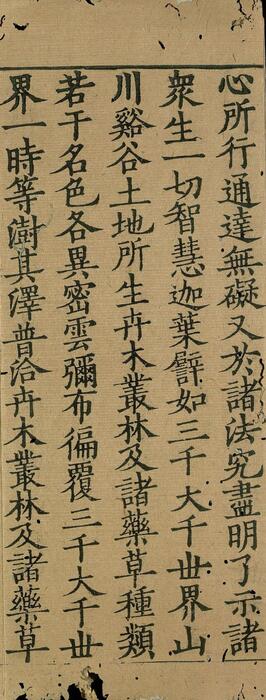 心所行通達無礙又於諸法究盡明了示諸
衆生一切智慧迦葉譬如三千大千世界山
川谿谷土地所生卉木叢林及諸藥草種類
若干名色各異密雲彌布徧覆三千大千世
界一時等澍其澤普洽卉木叢林及諸藥草